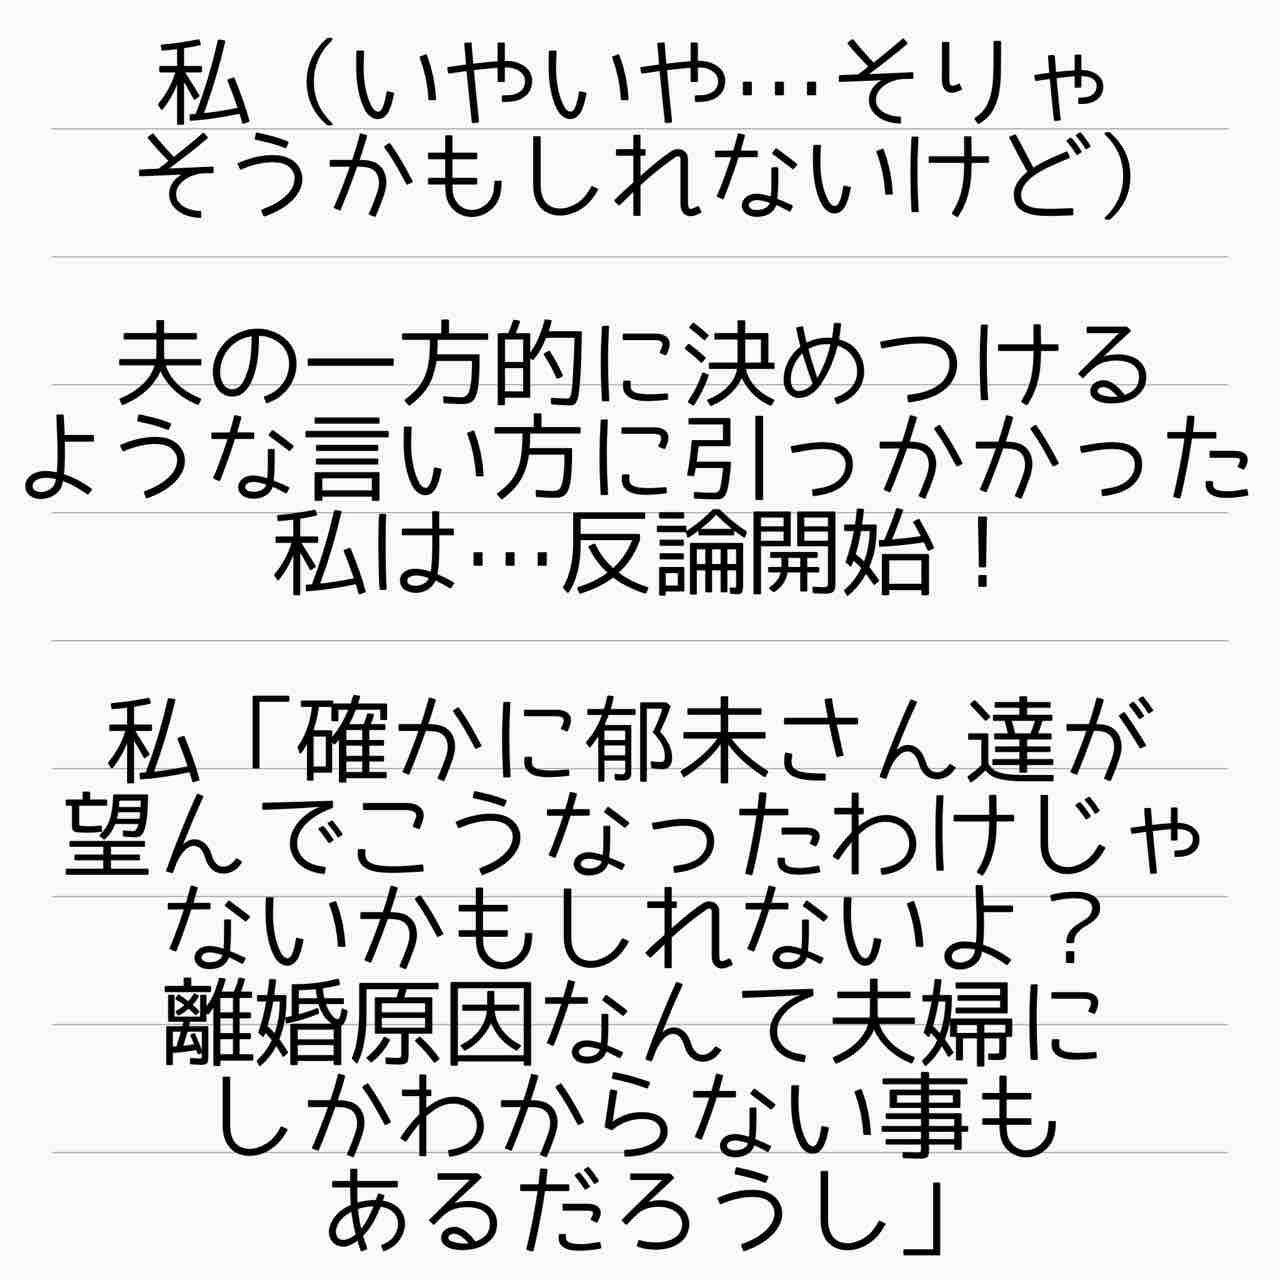 私（いやいや…そりゃ
そうかもしれないけど）
夫の一方的に決めつける
ような言い方に引っかかった
私は…反論開始！
私「確かに郁未さん達が
望んでこうなったわけじゃ
ないかもしれないよ？
離婚原因なんて夫婦に
しかわからない事も
あるだろうし」